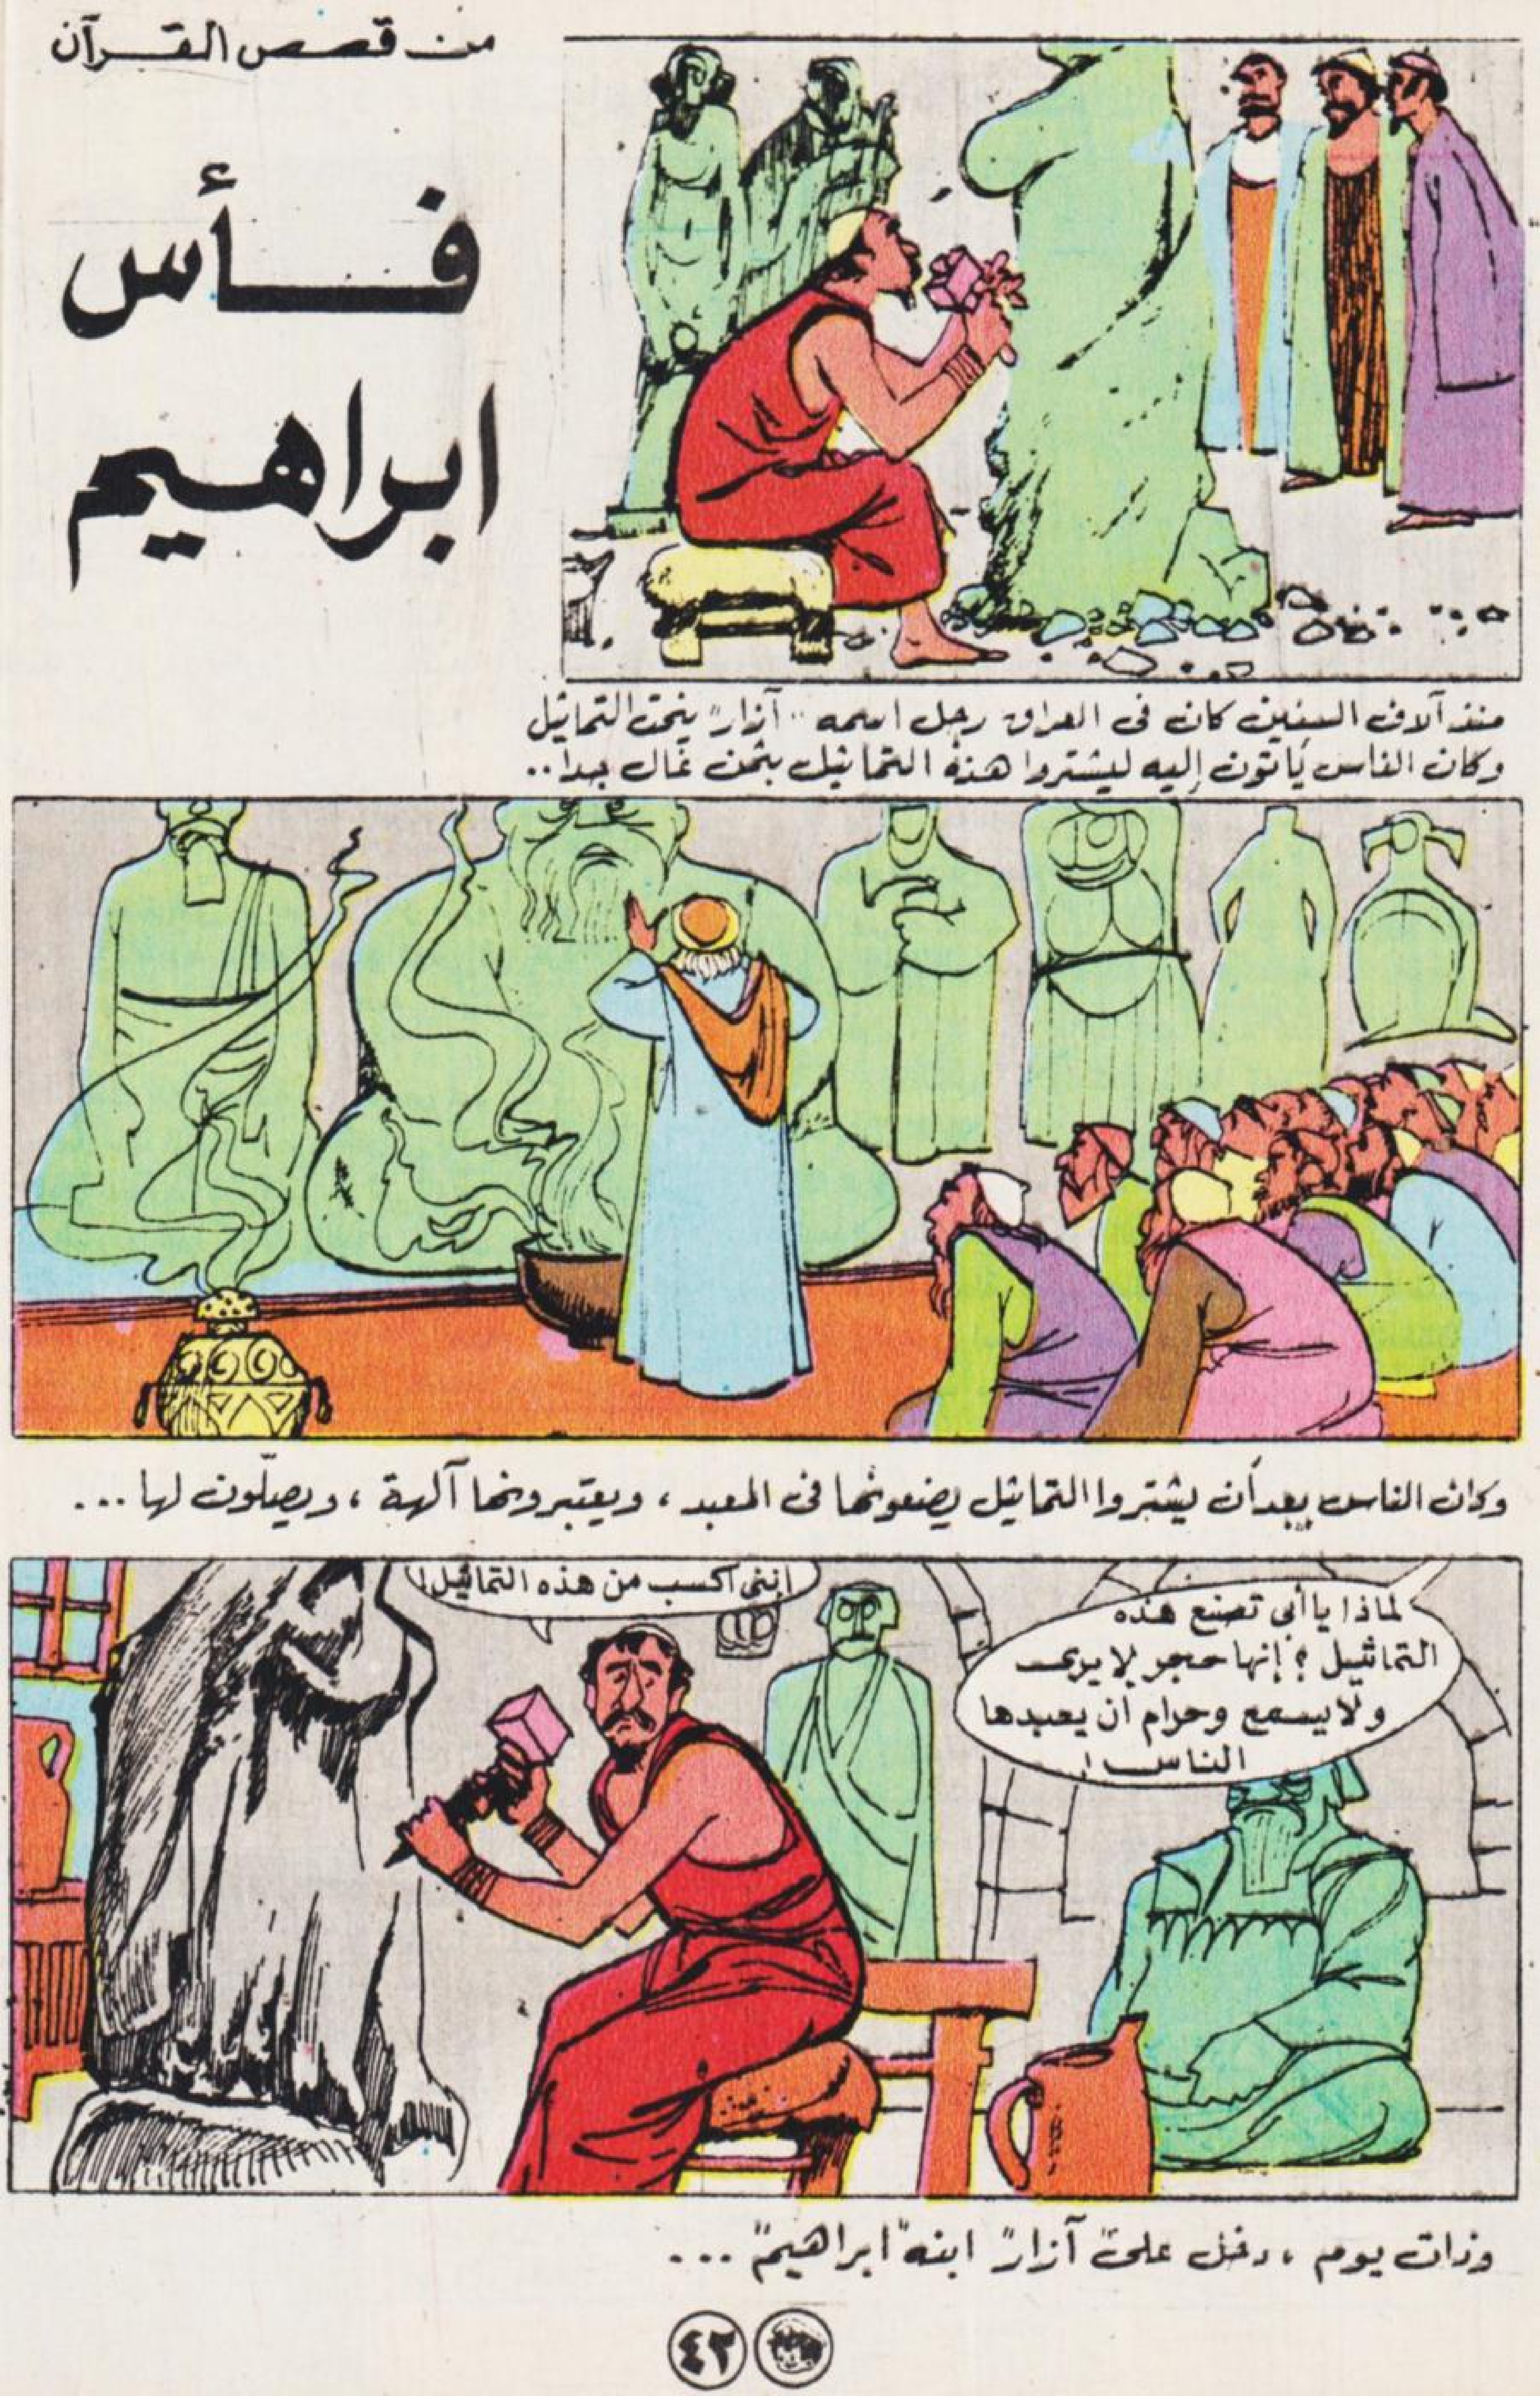 من قصص القرآن
فأس
ابراهيم
منذ آلاف السنين كان فى العراق رجل اسمه "آزار" ينحت التماثيل
وكان الناس يأتون إليه ليشتروا هذه التماثيل بثمن غال جدا..
وكان الناس بعد أن يشتروا التماثيل يضعونها فى المعبد ، ويعتبرونها آلهة ، ويصلّون لها ...
لماذا يا أبى تصنع هذه
التماثيل ؟ إنها حجر لا يرى
ولا يسمع وحرام أن يعبدها
الناس !
إننى أكسب من هذه التماثيل !
وذات يوم ، دخل على "آزار" ابنه "ابراهيم" ...
٤٢